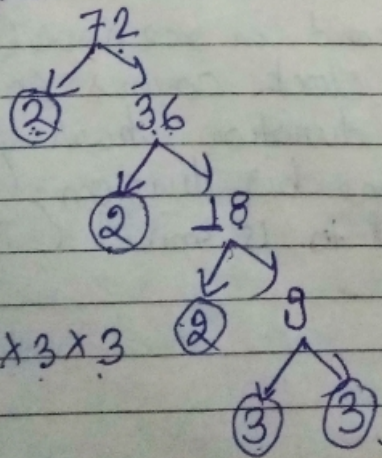 72
2 36
2 18
2 9
×3×3
3 3